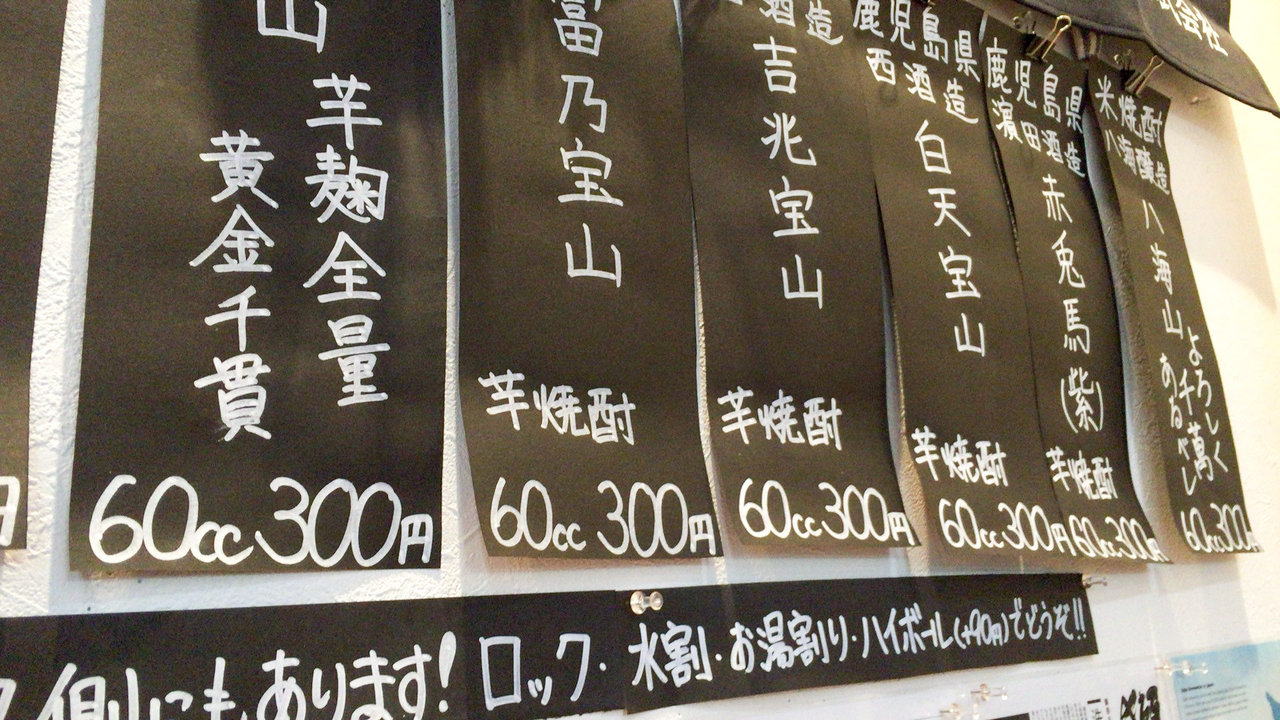 会社
米焼酎
八海醸造
八海山
よろしく
千萬
あるべし
60cc300
鹿児島県
濵田酒造
赤兎馬
(紫)
芋焼酎
60cc300円
鹿児島県
西酒造
白天宝山
芋焼酎
60cc300円
酒造
吉兆宝山
芋焼酎
60cc300円
富乃宝山
芋焼酎
60cc300円
山
芋麹全量
黄金千貫
60cc300円
他にもあります! ロック・水割・お湯割り・ハイボール(+90円)でどうぞ!!